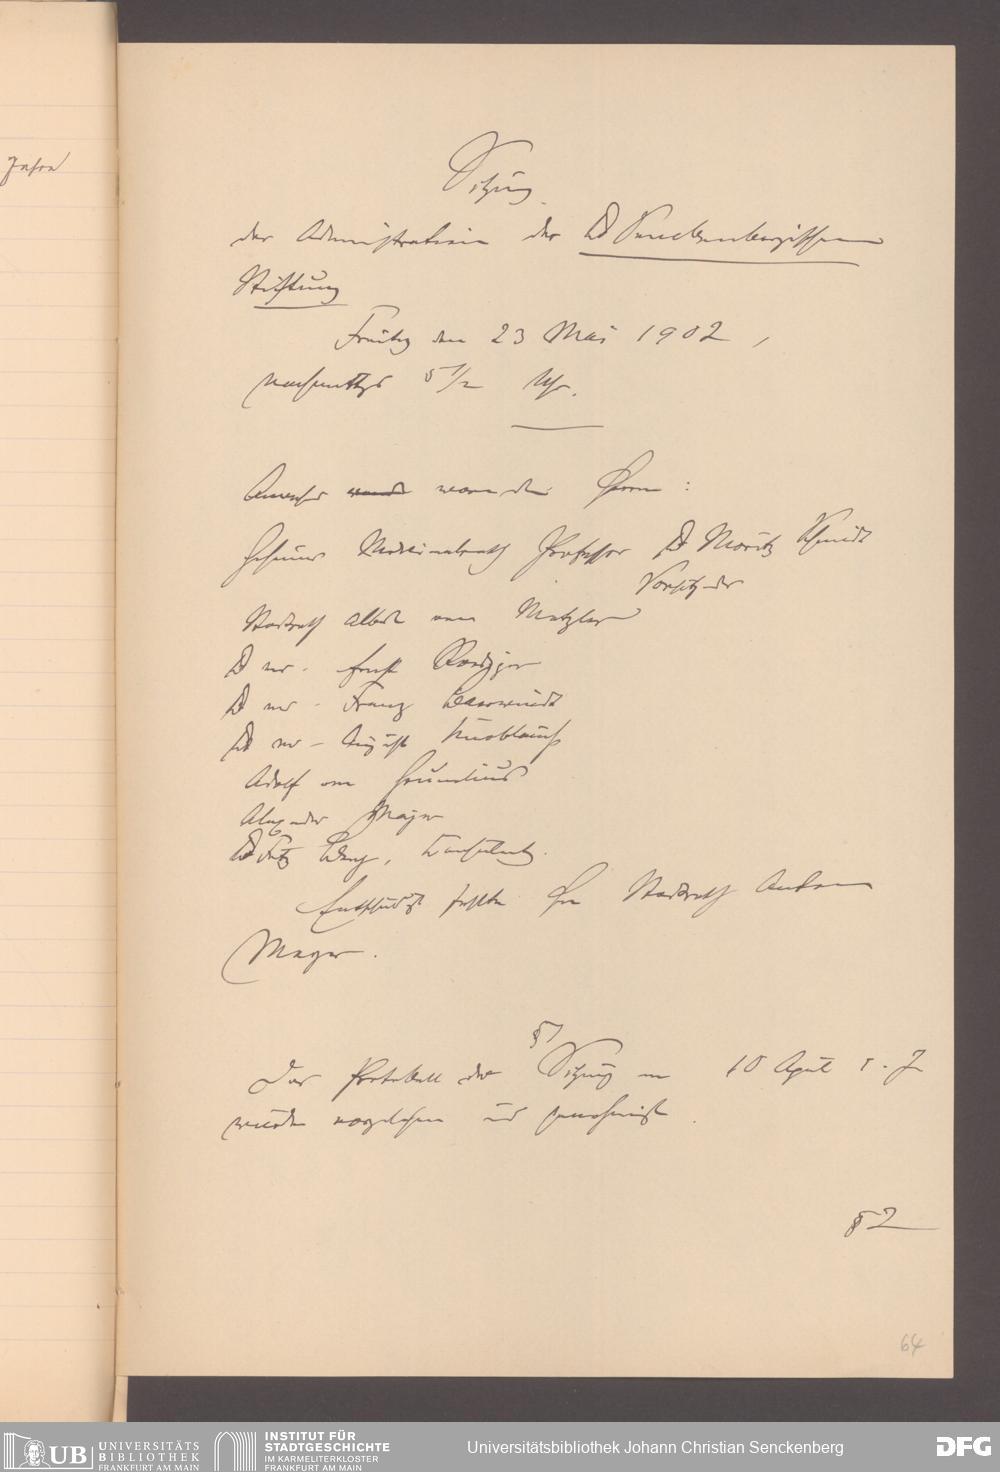 Sitzung
der Administration der Dr Senckenbergischen
Stiftung
Freitag den 23 Mai 1902,
nachmittags 5 1/2 Uhr.
Anwesend waren die Herren:
Geheimer Medicinalrath Professor Dr Moritz Schmidt
Vorsitzender
Stadtrath Albert von Metzler
Dr med. Ernst Roediger
Dr med. Franz
Dr med. August Knoblauch
Adolf von Grunelius
Alexander Majer
Dr Fritz Berg, Consulent.
Entschuldigt fehlte Herr Stadtrath Anton
Meyer.
§1
Das Protokoll der Sitzung vom 18 April d. J.
wurde vorgelesen und genehmigt.
§2
64
UB UNIVERSITÄTS
BIBLIOTHEK
FRANKFURT AM MAIN
INSTITUT FÜR
STADTGESCHICHTE
IM KARMELITERKLOSTER
FRANKFURT AM MAIN
Universitätsbibliothek Johann Christian Senckenberg
DFG